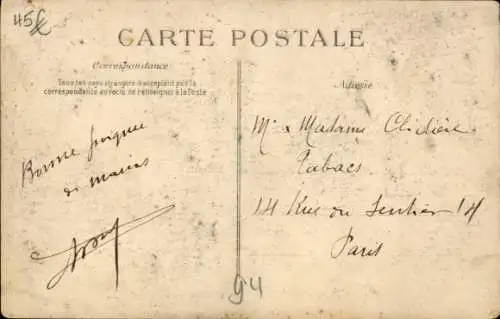 45€
CARTE POSTALE
Correspondance
Tous les pays étrangers n'acceptent pas la
correspondance au recto se renseigner à la Poste
Adresse
Bonne poignee
de mains
M. & Madame
Tabacs
14 Rue du Sentier 14
Paris
94